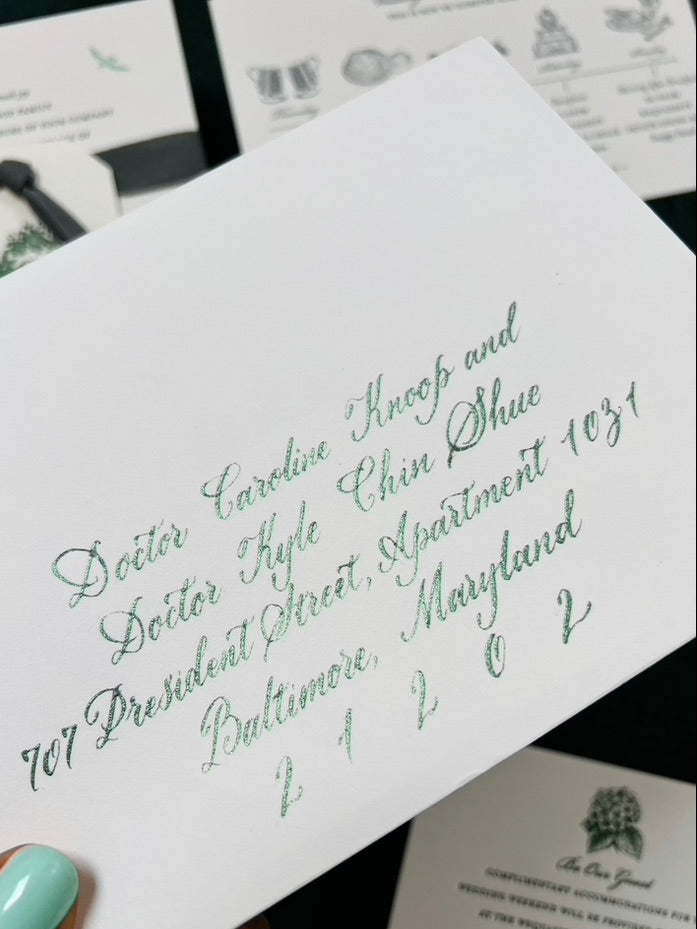 Doctor Caroline Knoop and
Doctor Kyle Chin Shue
707 President Street, Apartment 1031
Baltimore, Maryland
2 1 2 0 2
Be Our Guest
COMPLIMENTARY ACCOMMODATIONS FOR
WEDDING WEEKEND WILL BE PROVIDED
AT THE